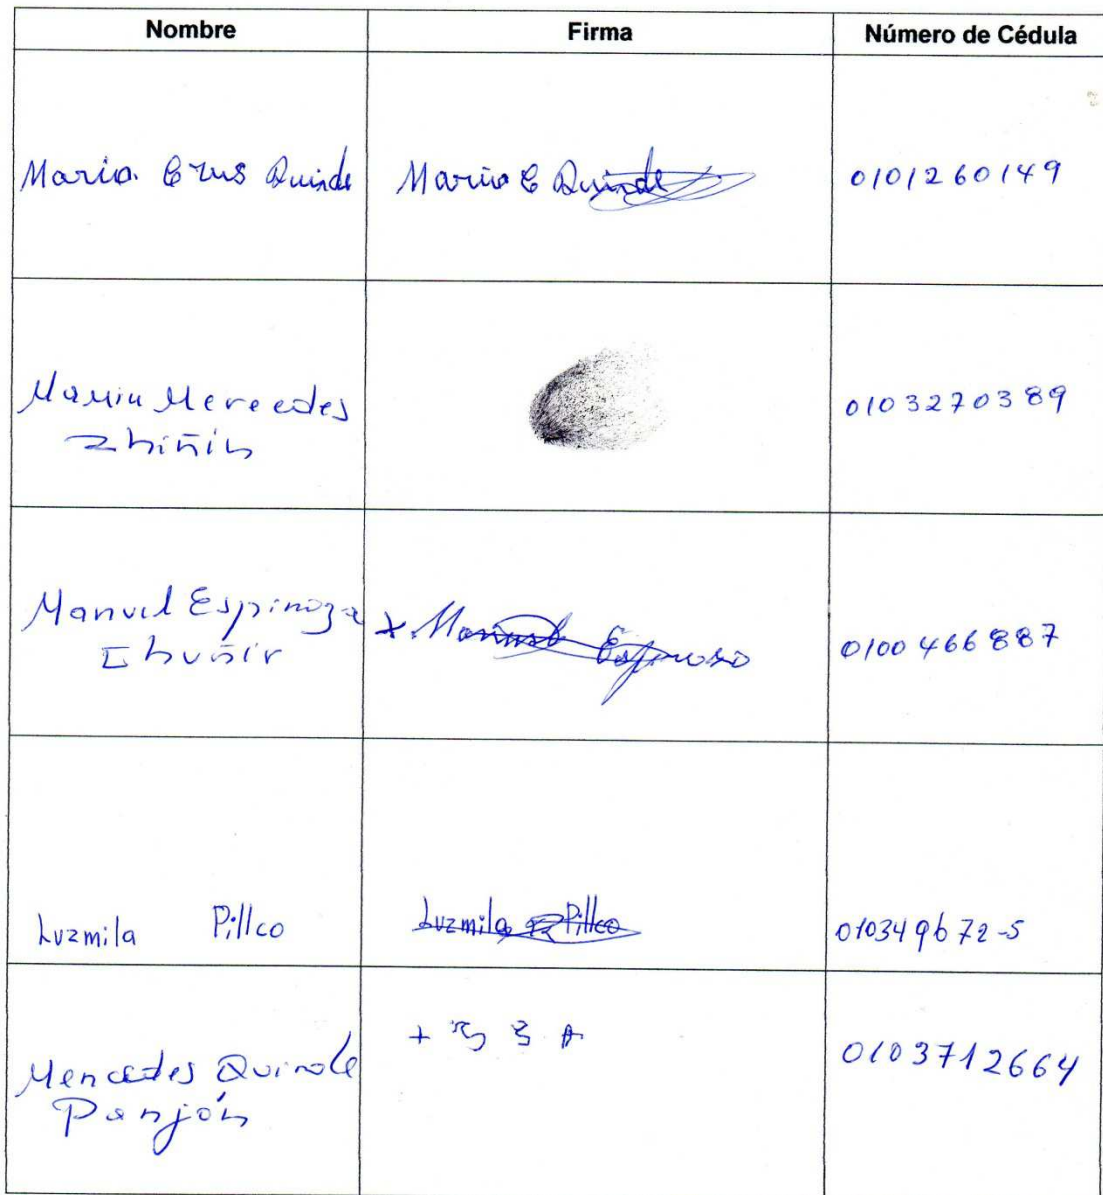 Nombre Firma Número de Cédula
Maria Crus Quinde Maria C Quinde 0101260149
Maria Mercedes 0103270389
Zhiñin
Manuel Espinoza + Manuel Espinoza 0100466887
Zhuñir
Luzmila Pillco Luzmila Pillco 010349672-5
Mercedes Quinde + 0103712664
Panjón